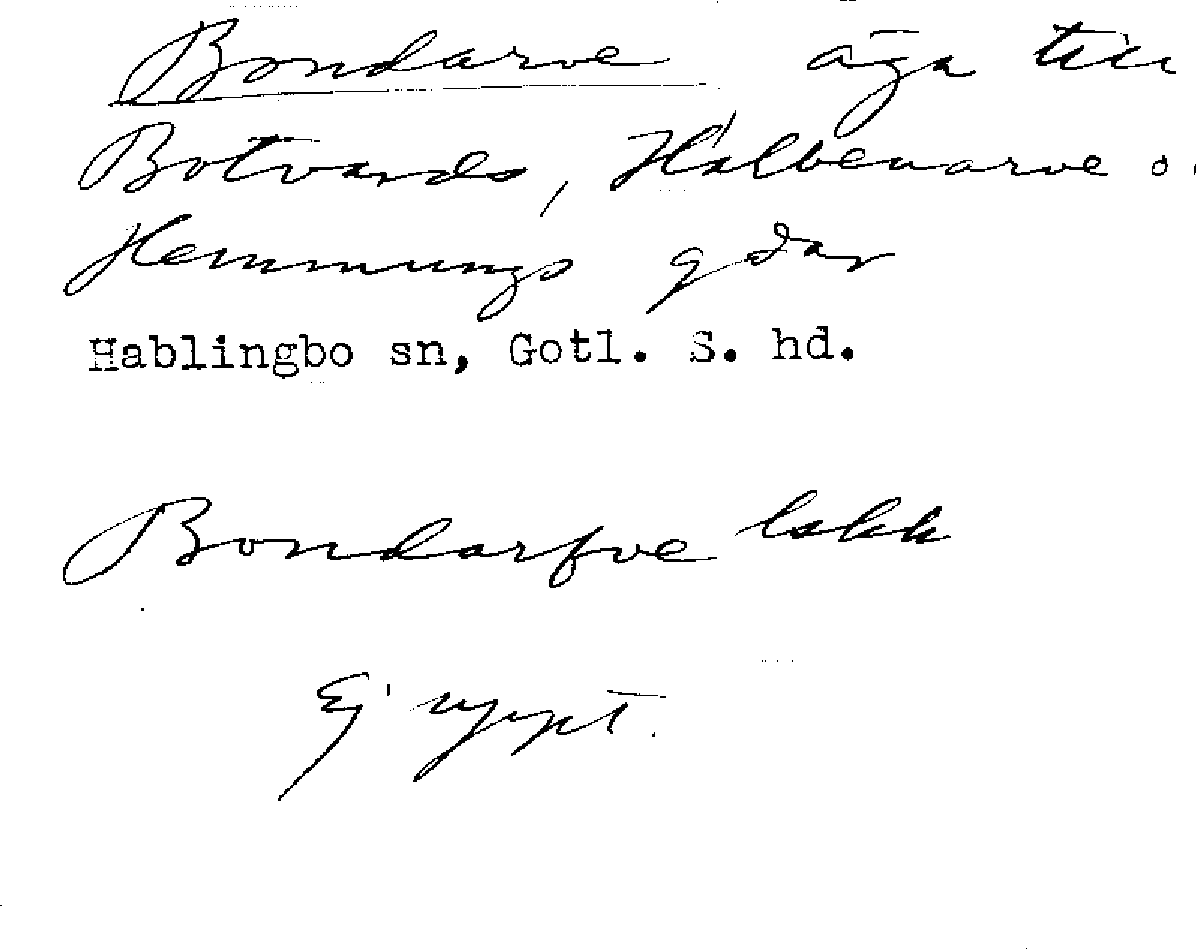 Bondarve äga till
Botvards, Halbenarve o.
Hemmungs gdar
Hablingbo sn, Gotl. S. hd.
Bondarfve lskk
Ej uppt.